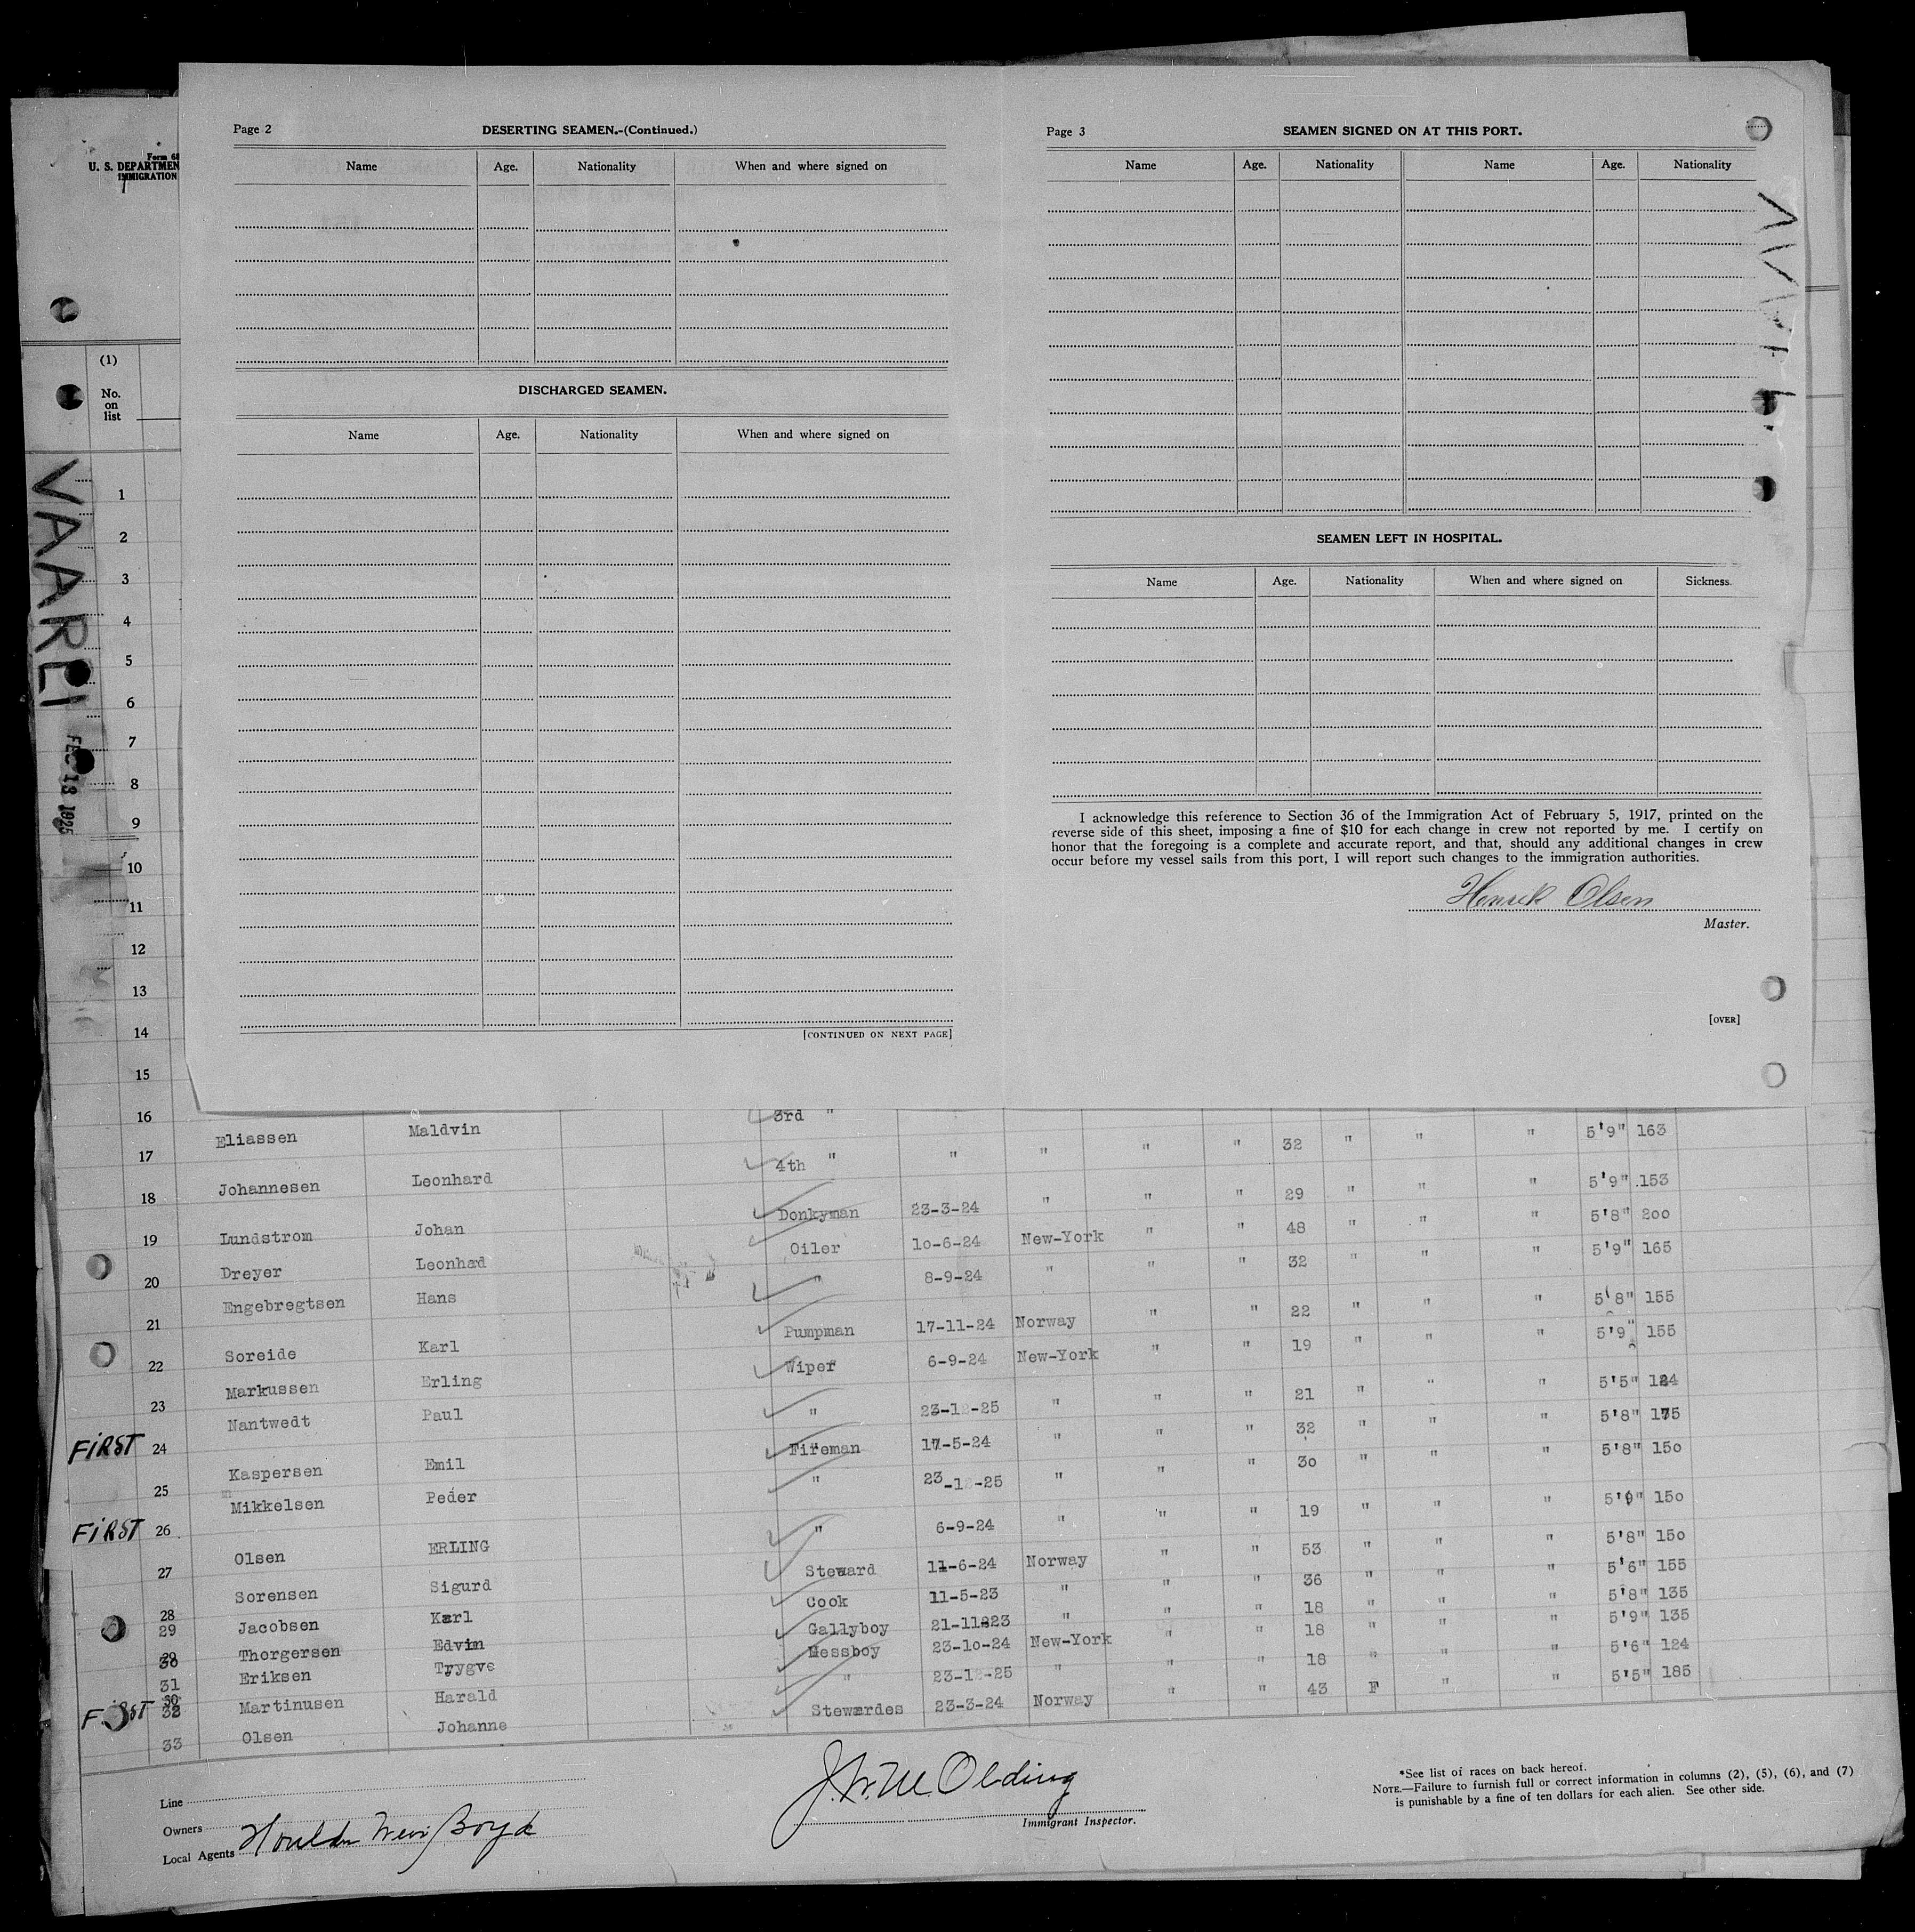 Page 2
DESERTING SEAMEN.-(Continued.)
Name Age. Nationality When and where signed on
DISCHARGED SEAMEN.
Name Age. Nationality When and where signed on
[CONTINUED ON NEXT PAGE]
Page 3
SEAMEN SIGNED ON AT THIS PORT.
Name Age. Nationality Name Age. Nationality
SEAMEN LEFT IN HOSPITAL.
Name Age. Nationality When and where signed on Sickness.
I acknowledge this reference to Section 36 of the Immigration Act of February 5, 1917, printed on the
reverse side of this sheet, imposing a fine of $10 for each change in crew not reported by me. I certify on
honor that the foregoing is a complete and accurate report, and that, should any additional changes in crew
occur before my vessel sails from this port, I will report such changes to the immigration authorities.
Henrik Olsen
Master.
[OVER]
Form 68
U. S. DEPARTMEN
IMMIGRATION
(1)
No.
on
list
VAAREI
FEB 13 1925
1
2
3
4
5
6
7
8
9
10
11
12
13
14
15
16 3rd "
17 Eliassen Maldvin 4th " " " " " 32 " " " 5'9" 163
18 Johannesen Leonhard Donkyman 23-3-24 " " " 29 " " " 5'9" 153
19 Lundstrom Johan Oiler 10-6-24 New-York " " 48 " " " 5'8" 200
20 Dreyer Leonhad " 8-9-24 " " " 32 " " " 5'9" 165
21 Engebregtsen Hans Pumpman 17-11-24 Norway " " 22 " " " 5'8" 155
22 Soreide Karl Wiper 6-9-24 New-York " " 19 " " " 5'9" 155
23 Markussen Erling " 23-12-25 " " " 21 " " " 5'5" 124
FIRST 24 Nantwedt Paul Fireman 17-5-24 " " " 32 " " " 5'8" 175
25 Kaspersen Emil " 23-1-25 " " " 30 " " " 5'8" 150
FIRST 26 Mikkelsen Peder " 6-9-24 " " " 19 " " " 5'9" 150
27 Olsen ERLING Steward 11-6-24 Norway " " 53 " " " 5'8" 150
28 Sorensen Sigurd Cook 11-5-23 " " " 36 " " " 5'6" 155
29 Jacobsen Karl Gallyboy 21-11-23 " " " 18 " " " 5'8" 135
30 Thorgersen Edvin Messboy 23-10-24 New-York " " 18 " " " 5'9" 135
31 Eriksen Trygve " 23-1-25 " " " 18 " " " 5'6" 124
FIRST 32 Martinusen Harald Stewerdes 23-3-24 Norway " " 43 F " " 5'5" 185
33 Olsen Johanne
Line
Owners
Local Agents Houlder Weir Boyd
J.W.M. Olding
Immigrant Inspector.
*See list of races on back hereof.
NOTE.—Failure to furnish full or correct information in columns (2), (5), (6), and (7)
is punishable by a fine of ten dollars for each alien. See other side.